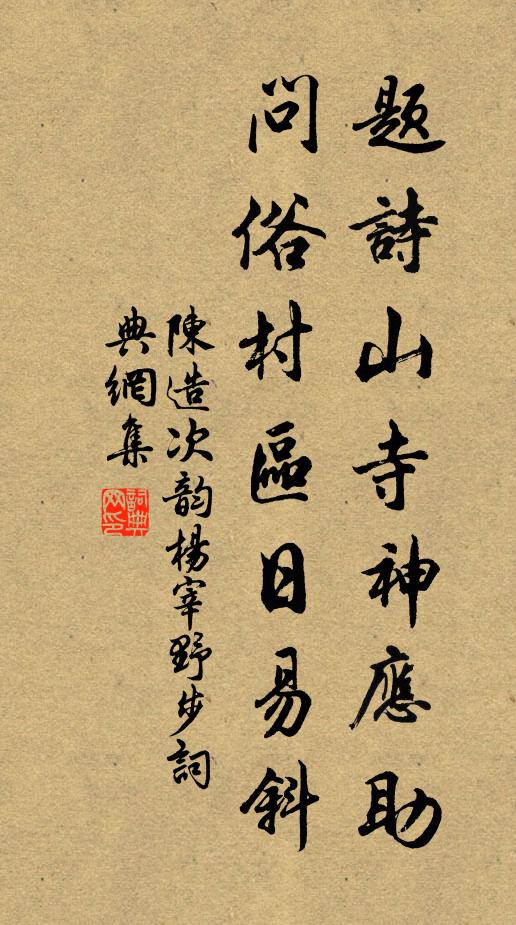 題詩山寺神應助
問俗村區日易斜
陳造次韵楊宰野步詞
典網集
詞典網印